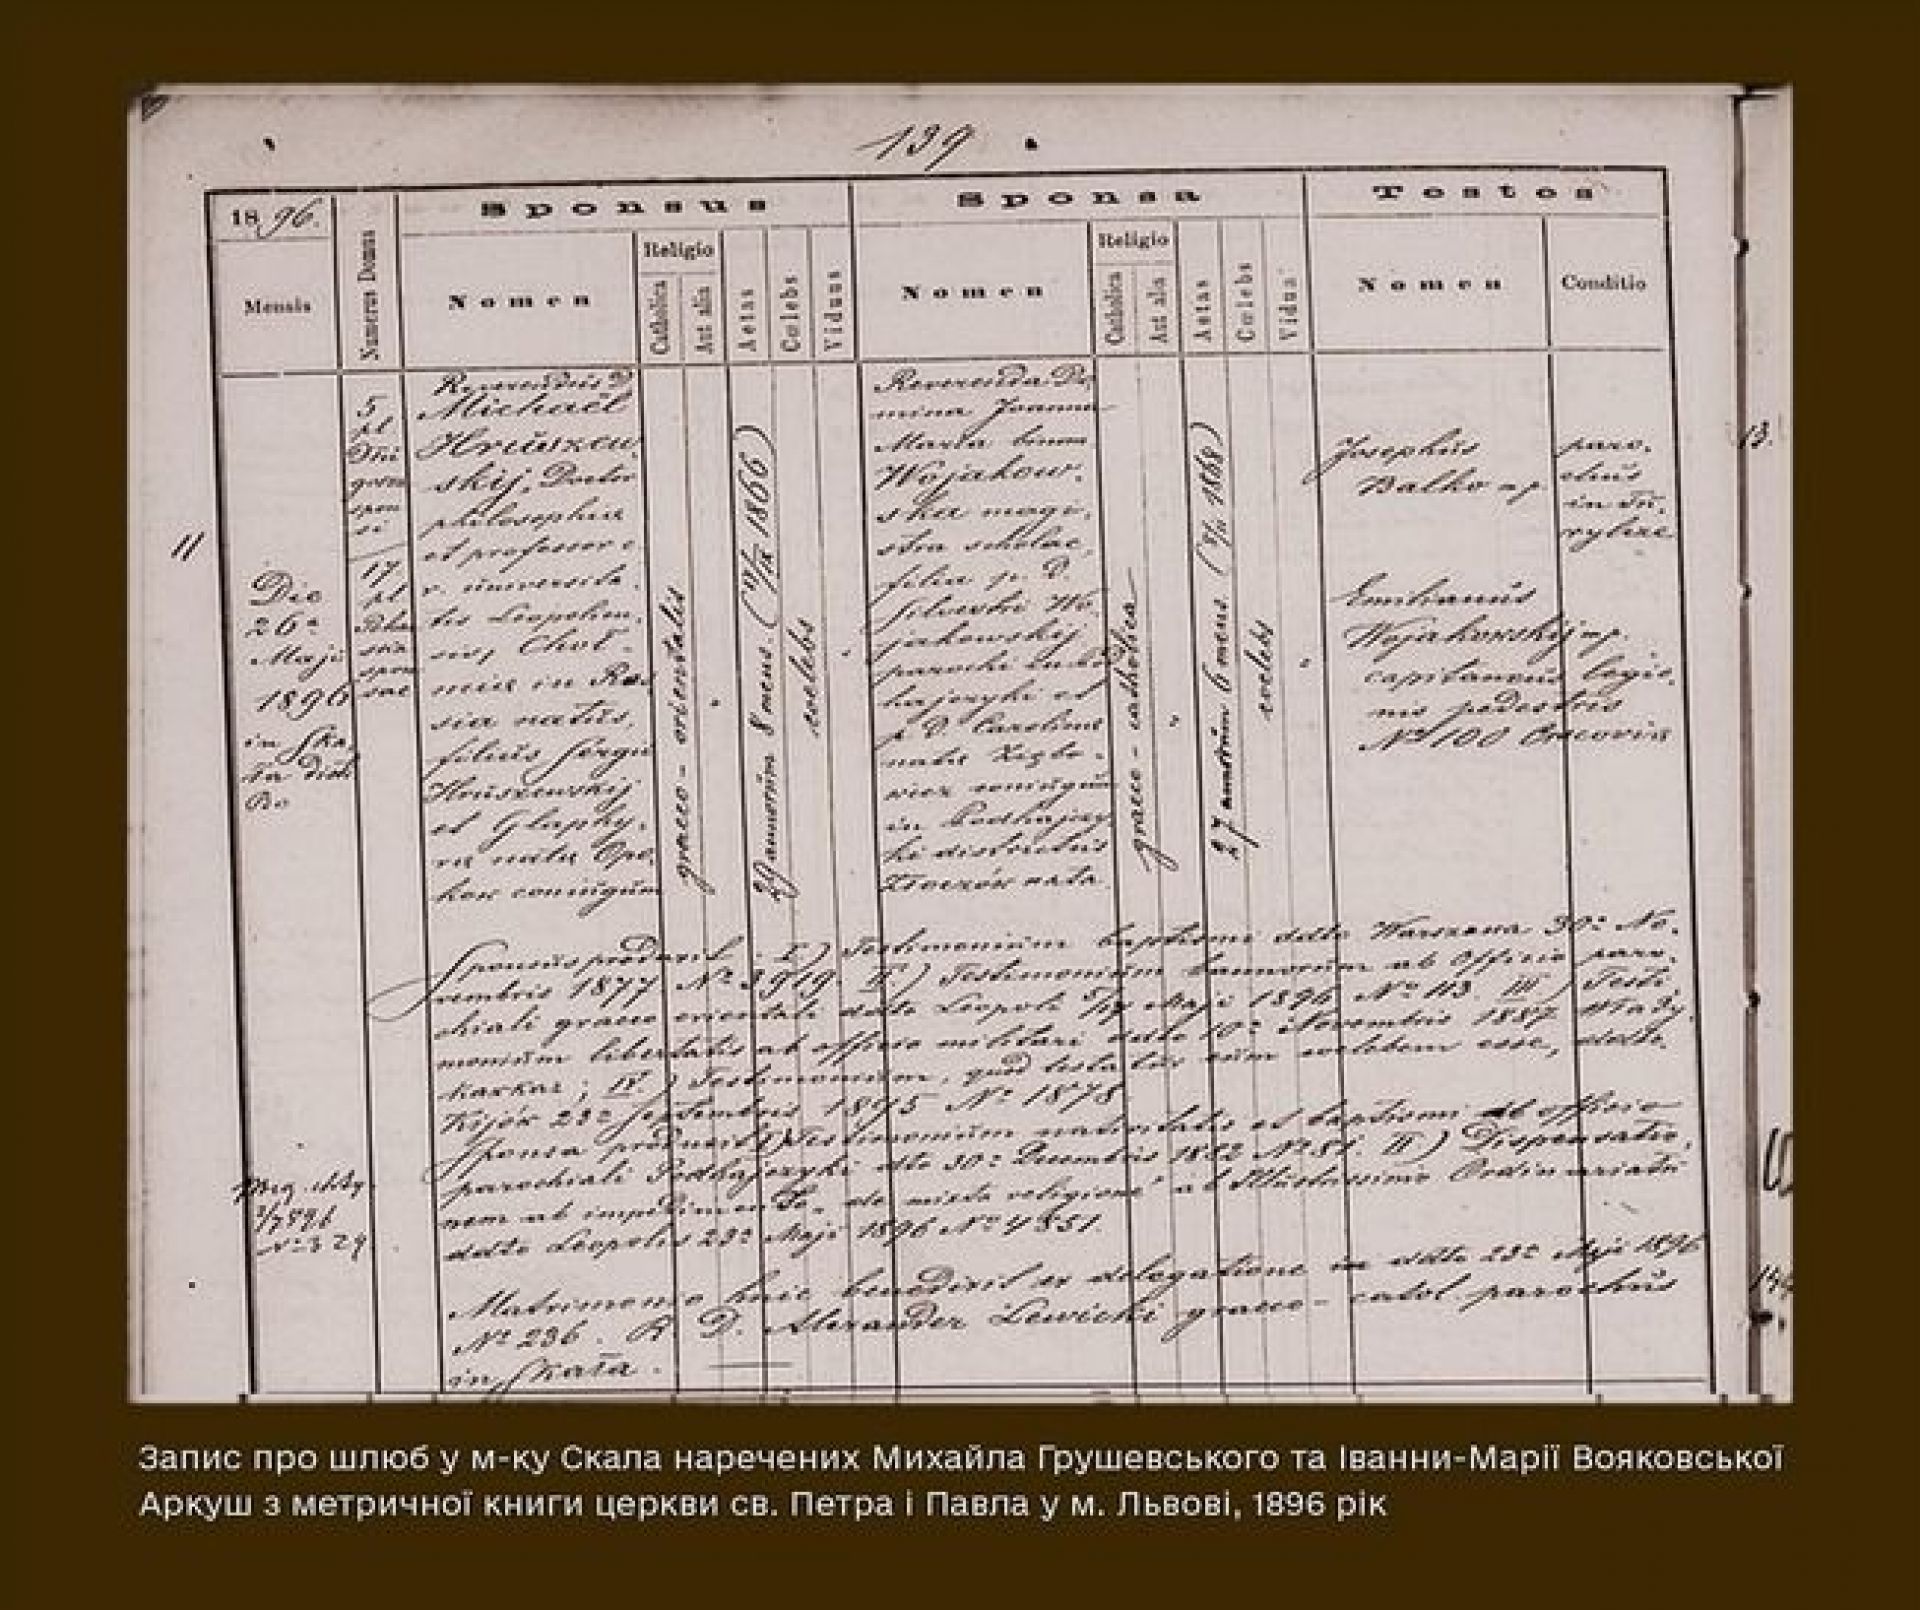 139
1896.
Sponsus
Sponsa
Testes
Mensis
Numerus Domus
Nomen
Religio
Catholica
Aut alia
Aetas
Cœlebs
Viduus
Nomen
Religio
Catholica
Aut alia
Aetas
Cœlebs
Vidua
Nomen
Conditio
11
Die
26a
Maji
1896
in Ska
ła
5
pl
spon
si
17
pl
spon
sae
Michaël
Hruszew
skij, Doctor
philosophiae
et professor c.
r. universita
tis Leopolien
sis,
miae in Ros
sia natus,
filius Sergii
Hruszewskij
et Glaphy
rae natae Opo
kow coniugum
graeco - orientalis
29 annorum 8 mens. (17/IX 1866)
coelebs
Reverenda Do
mina Joanna
Maria
Wojakow
ska magi
stra scholae,
filia p. D.
Silvestri Wo
jakowskij
parochi
hajczyki et
p. D. Carolinae
natae
wicz coniugum
in Podhajczy
ki districtus
Złoczów nata
graeco - catholica
27 annorum 6 mens. ( 1868)
coelebs
Josephus
Balko mp
paro
chus
in
Emilianus
Wojakowskij mp.
capitaneus legio
nis pedestris
No 100 Cracoviae
13.
Sponsus produxit: I.) Testimonium baptismi ddto Warszawa 30a No
vembris 1877 No 3919. II.) Testimonium bannorum ab Officio paro
chiali graeco orientali ddto Leopoli Maji 1896 No 113. III.) Testi
monium libertatis ab officio militari ddto 10a Novembris 1887 Wlady
kaukaz; IV.) Testimonium, quod testatur eum coelebem esse, ddto
Kijów 23a Septembris 1895 No 1878.
Sponsa produxit I) Testimonium nativitatis et baptismi ab officio
parochiali Podhajczyki dto 30a Decembris 1882 No 81. II.) Dispensatio
nem ab impedimento "de mixta religione" ab Illustrissimo Ordinariatu
ddto Leopolis 23a Maji 1896 No 4351.
No 329
Matrimonio huic benedixit ex delegatione ddto 23a Maji 1896
No 236. R. D. Alexander Lewicki graeco - catol. parochus
in Skała.
Запис про шлюб у м-ку Скала наречених Михайла Грушевського та Іванни-Марії Вояковської
Аркуш з метричної книги церкви св. Петра і Павла у м. Львові, 1896 рік